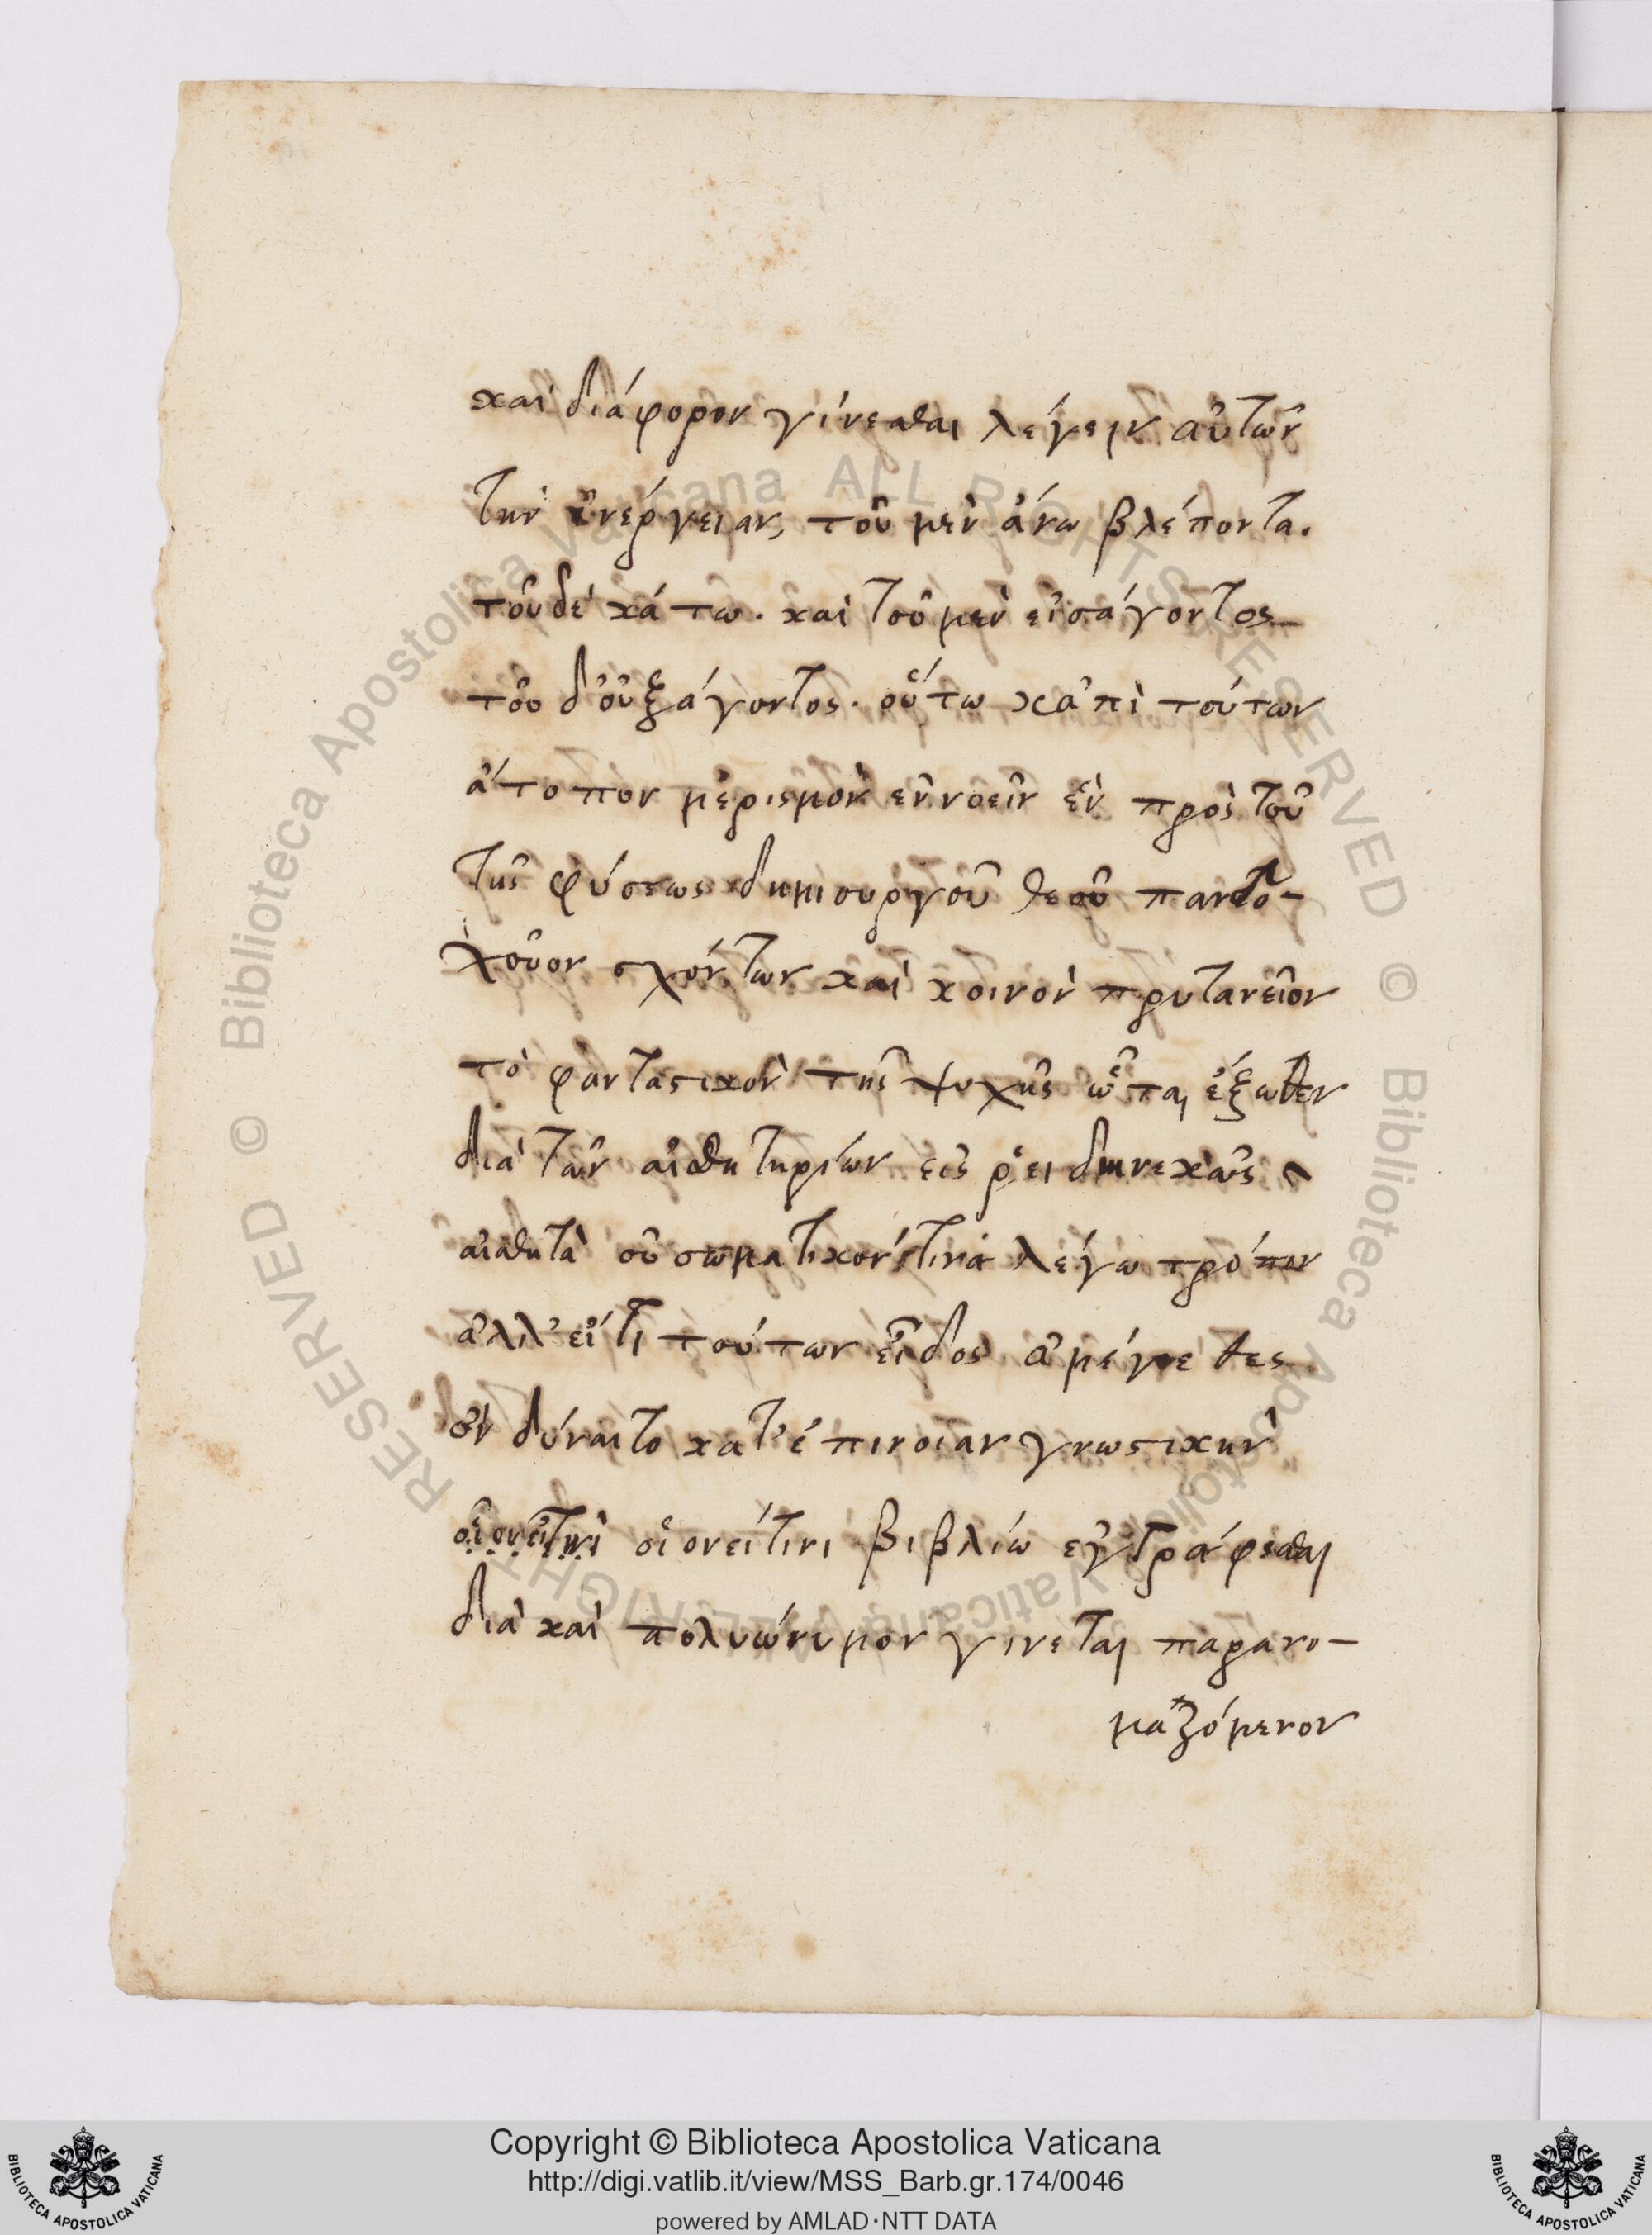 καὶ διάφορον γίνεσθαι λέγειν αὐτῶν
τὴν ἐνέργειαν, τοῦ μὲν ἄνω βλέποντα.
τοῦ δὲ κάτω. καὶ τοῦ μὲν εἰσάγοντος
τοῦ δ' οὐξάγοντος. οὕτω κἀπὶ τούτων
ἄτοπον μερισμὸν ἐννοεῖν ἓν πρὸς τοῦ
τῆς φύσεως δημιουργοῦ θεοῦ πανδο-
χοῦον σχόντων καὶ κοινὸν πρυτανεῖον
τὸ φανταστικὸν τῆς ψυχῆς ὧται ἔξωθεν
διὰ τῶν αἰσθητηρίων εἰς ῥεῖ διηνεκῶς
αἰσθητὰ οὐ σωματικόν τινα λέγω τρόπον
ἀλλ' εἴ τι τούτων εἶδος ἀμέγεθες
ἂν δύναιτο κατ' ἐπίνοιαν γνωστικὴν
οἱονεί τινι οἱονεί τινι βιβλίω ἐγγράφεσθαι
διὰ καὶ πολυώνυμον γίνεται παρανο-
μαζόμενον
Copyright © Biblioteca Apostolica Vaticana
http://digi.vatlib.it/view/MSS_Barb.gr.174/0046
powered by AMLAD·NTT DATA
BIBLIOTECA APOSTOLICA VATICANA
BIBLIOTECA APOSTOLICA VATICANA
© Biblioteca Apostolica Vaticana ALL RIGHTS RESERVED
© Biblioteca Apostolica Vaticana ALL RIGHTS RESERVED